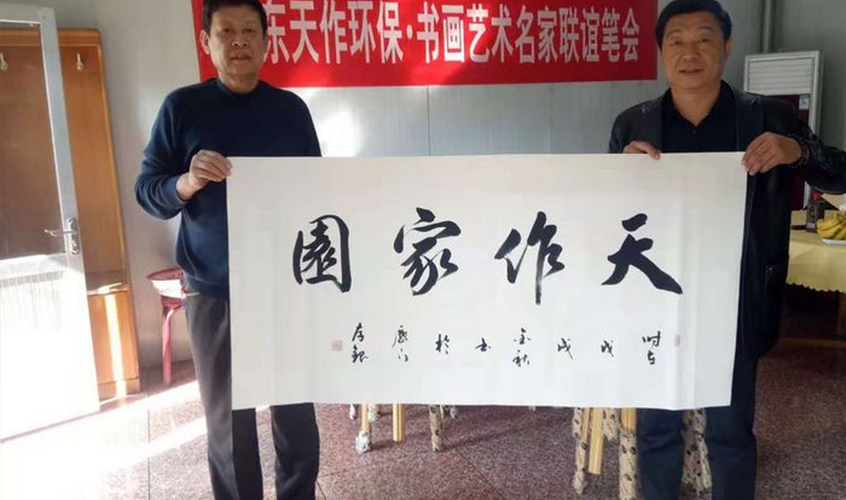 东天作环保·书画艺术名家联谊笔会
天作家園
时在戊戌金秋书於